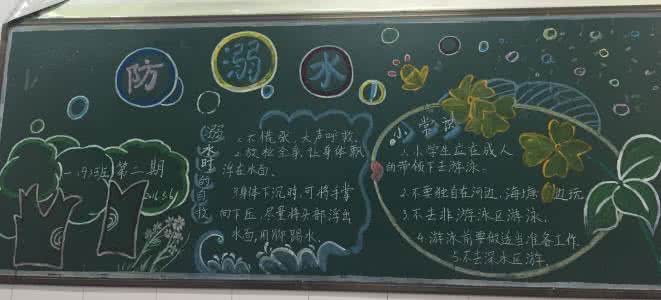 防溺水
一(9)班第二期
溺水时的自救
1.不慌张,大声呼救.
2.放松全身,让身体飘
浮在水面.
3.身体下沉时,可将手掌
向下压,尽量将头部浮出
水面,用脚踢水.
小常识
1.小学生应在成人
的带领下去游泳.
2.不要独自在河边,海边玩
3.不去非游泳区游泳.
4.游泳前要做适当准备工作
5.不去深水区游